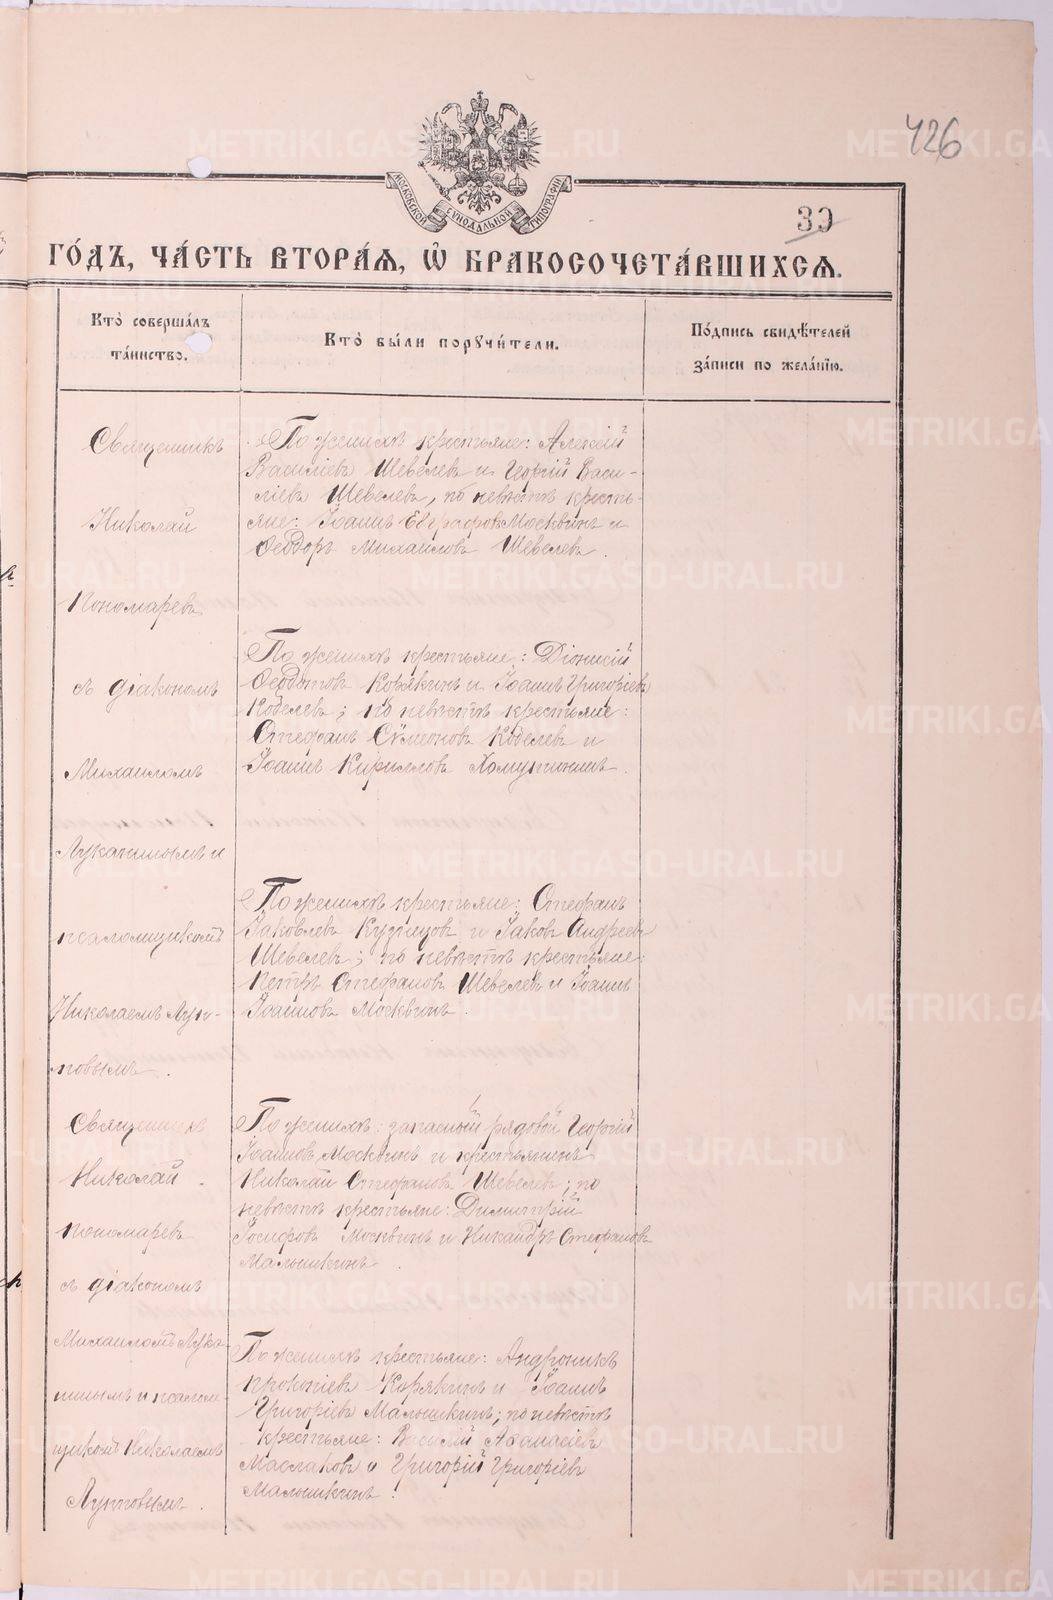 426
30
МОСКОВСКОЙ СУНОДАЛЬНОЙ ТИПОГРАФІИ
ГО́ДЪ, ЧА́СТЬ ВТОРА́Ѧ, Ѽ БРАКОСОЧЕТА́ВШИХСѦ.
Кто̀ соверша́лъ
та́инство.
Кто̀ бы́ли порꙋчи́тели.
По́дпись свидѣ́телей
за́писи по жела́нїю.
Священникъ
Николай
Пономаревъ
съ діакономъ
Михаиломъ
Луканинымъ и
псаломщикомъ
Николаемъ Луп-
повымъ.
По женихѣ крестьяне: Алексій
Василіевъ Шевелевъ и Георгій Васи-
ліевъ Шевелевъ, по невѣстѣ кресть-
яне: Іоаннъ Евграфовъ Москвинъ и
Ѳеодоръ Михаиловъ Шевелевъ.
По женихѣ крестьяне: Діонисій
Ѳеодотовъ Корякинъ и Іоаннъ Григоріевъ
Кобелевъ; по невѣстѣ крестьяне:
Стефанъ Сѵмеоновъ Кобелевъ и
Іоаннъ Кирилловъ Хомутининъ.
По женихѣ крестьяне: Стефанъ
Іаковлевъ Кузнецовъ и Іаковъ Андреевъ
Шевелевъ; по невѣстѣ крестьяне:
Петръ Стефановъ Шевелевъ и Іоаннъ
Іоанновъ Москвинъ.
Священникъ
Николай
Пономаревъ
съ діакономъ
Михаиломъ Лука-
нинымъ и псалом-
щикомъ Николаемъ
Лупповымъ.
По женихѣ: запасный рядовой Георгій
Іоанновъ Москвинъ и крестьянинъ
Николай Стефановъ Шевелевъ; по
невѣстѣ крестьяне: Димитрій
Іосифовъ Москвинъ и Никандръ Стефановъ
Малышкинъ.
По женихѣ крестьяне: Андроникъ
Прокопіевъ Корякинъ и Іоаннъ
Григоріевъ Малышкинъ; по невѣстѣ
крестьяне: Василій Аѳанасіевъ
Маслаковъ и Григорій Григоріевъ
Малышкинъ.
METRIKI.GASO-URAL.RU